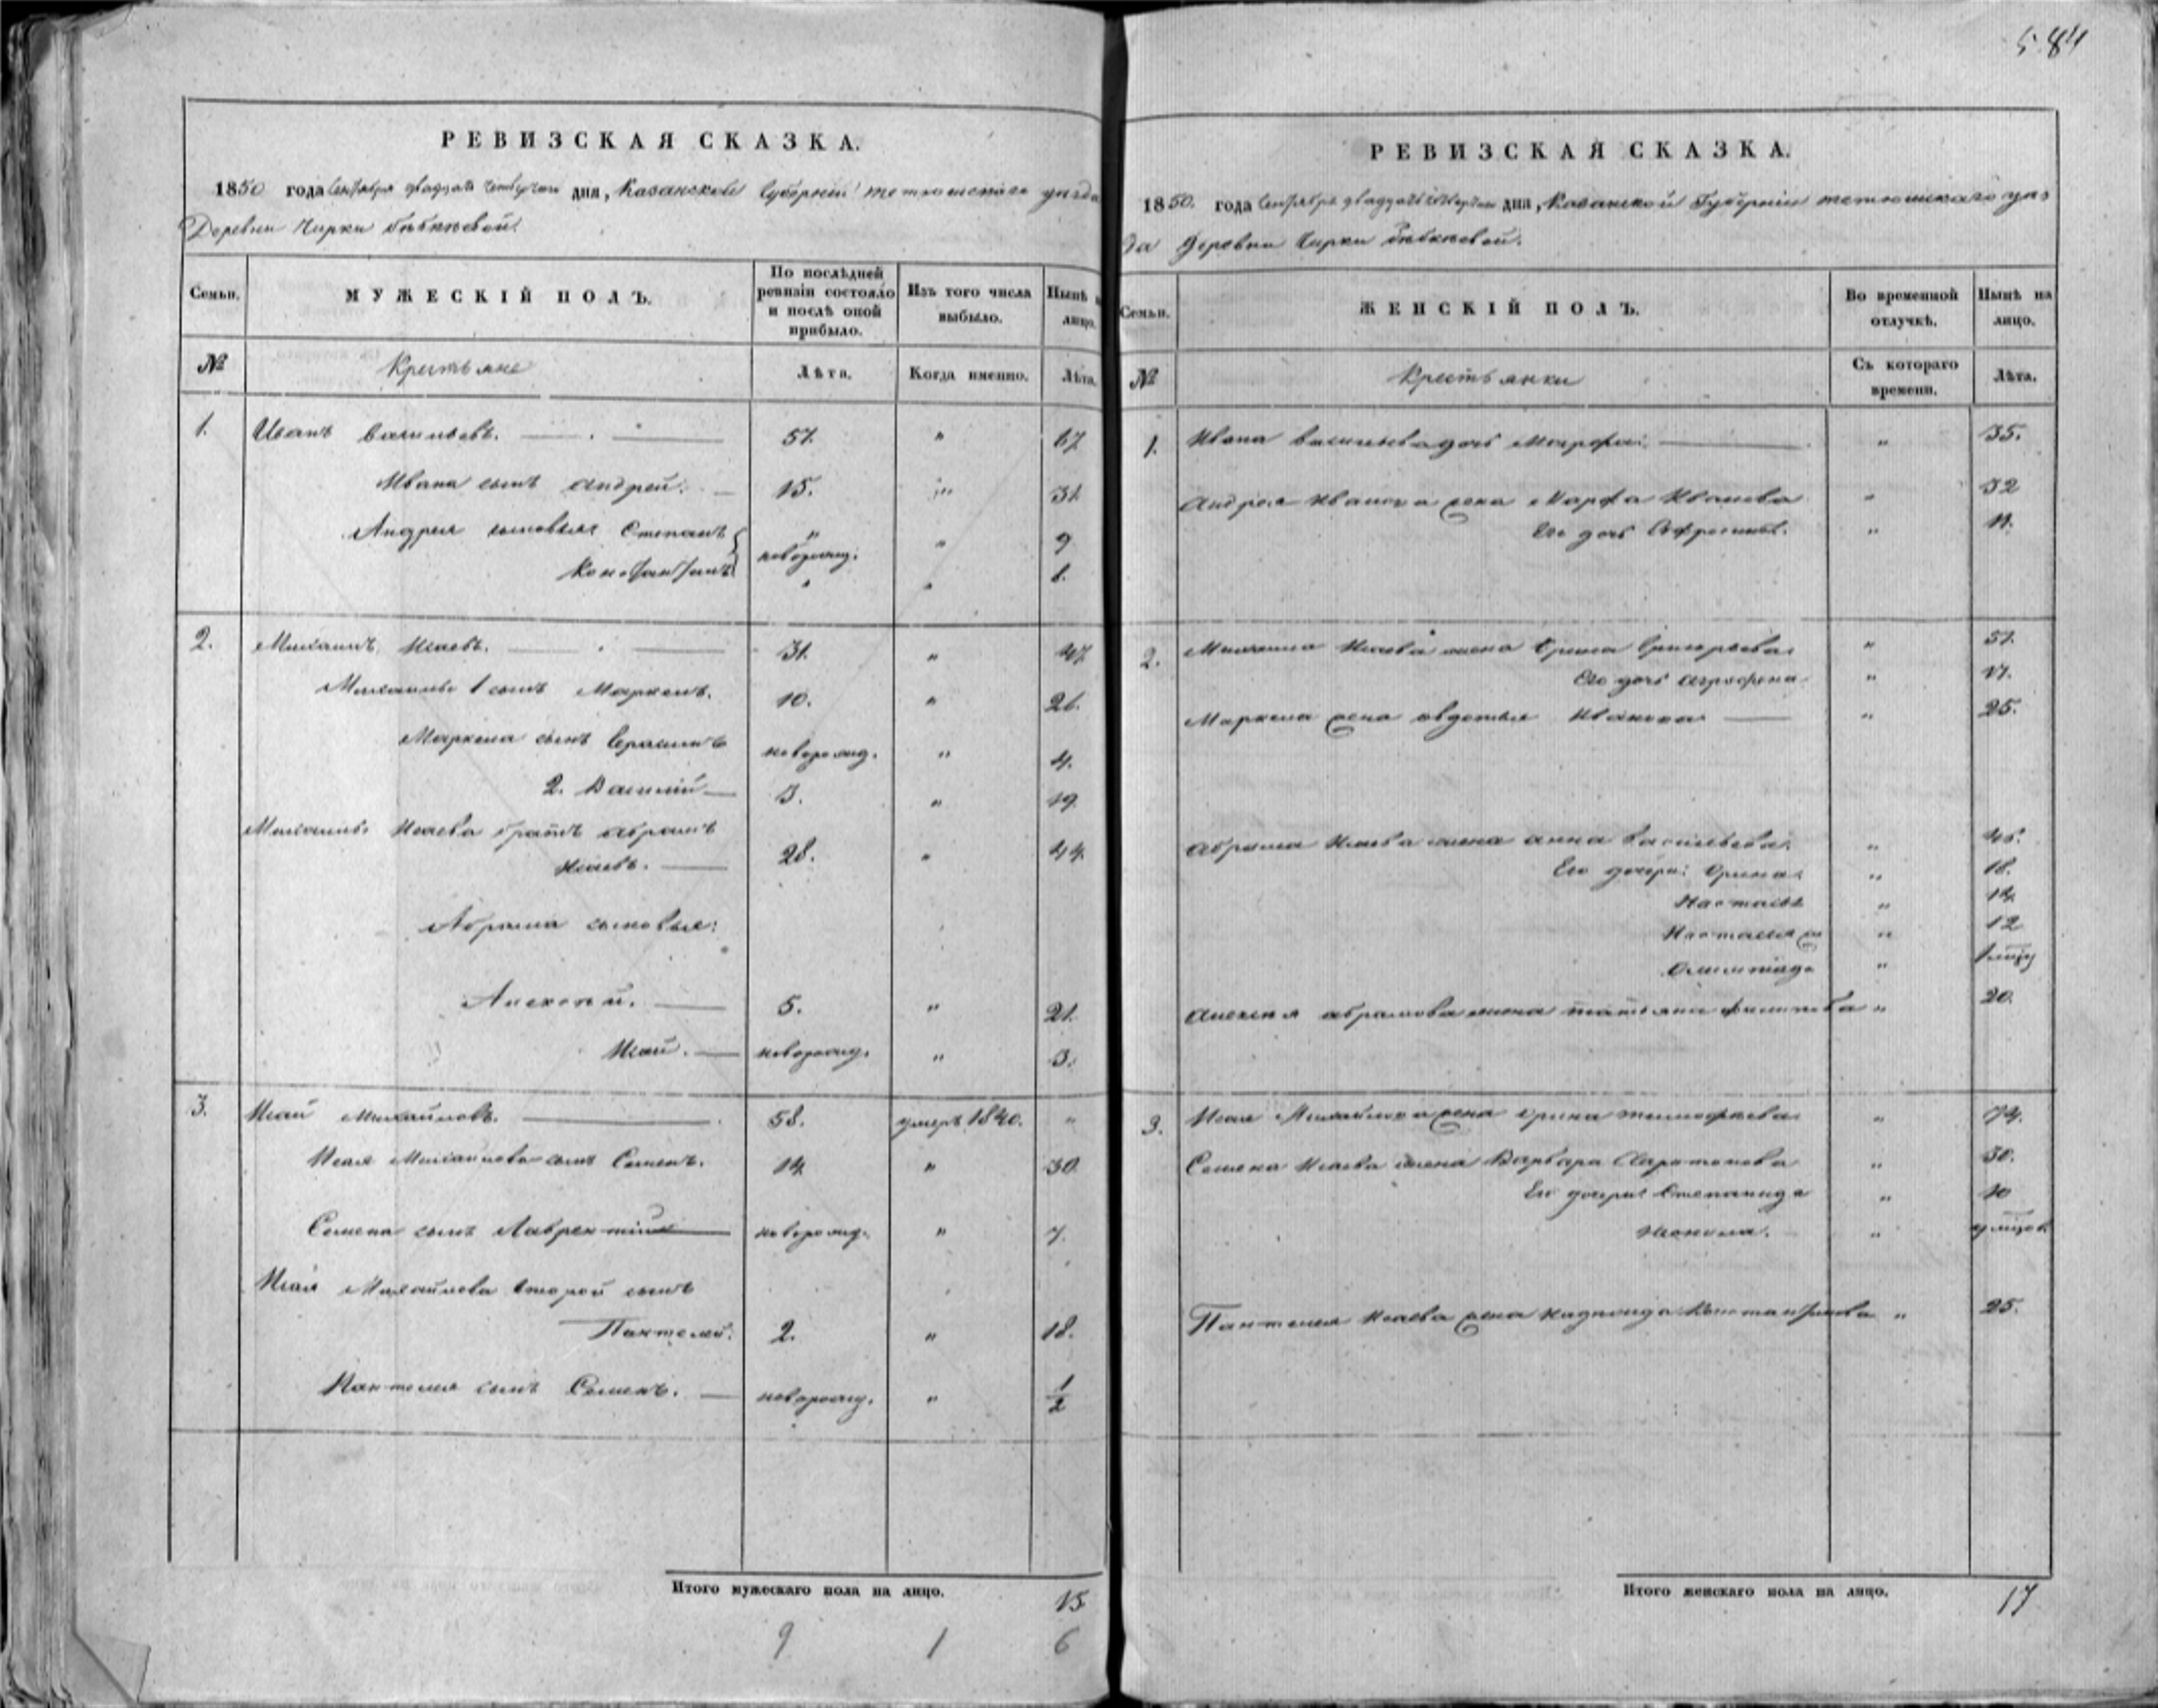 584
РЕВИЗСКАЯ СКАЗКА.
1850 года Сентября двадцать четвертаго дня, Казанской Губернии Тетюшскаго уезда
Деревни Чирки Бебкеевой.
Семьи. МУЖЕСКІЙ ПОЛЪ. По послѣдней ревизіи состояло и послѣ оной прибыло. Изъ того числа выбыло. Нынѣ на лицо.
№ Крестьяне Лѣта. Когда именно. Лѣта.
1. Иванъ Васильевъ. 51. " 67
Ивана сынъ Андрей. 15. " 31.
Андрея сыновья: Степанъ новорожд. " 9
Константинъ " " 1.
2. Михаилъ Исаевъ. 31. " 47
Михаилы 1 сынъ Маркелъ. 10. " 26.
Маркела сынъ Герасимъ новорожд. " 4.
2. Василий 3. " 19.
Михаилы Исаева братъ Абрамъ
Исаевъ. 28. " 44.
Абрама сыновья:
Алексей. 5. " 21.
Исай. новорожд. " 3.
3. Исай Михайловъ. 58. умеръ 1840. "
Исая Михайлова сынъ Семенъ. 14. " 30.
Семена сынъ Лаврентий новорожд. " 7.
Исая Михайлова второй сынъ
Пантелей. 2. " 18.
Пантелея сынъ Семенъ. новорожд. " 1/2
Итого мужескаго пола на лицо. 15
9 1 6
РЕВИЗСКАЯ СКАЗКА.
1850. года Сентября двадцать четвертаго дня, Казанской Губернии Тетюшскаго уез
да Деревни Чирки Бебкеевой.
Семьи. ЖЕНСКІЙ ПОЛЪ. Во временной отлучкѣ. Нынѣ на лицо.
№ Крестьянки Съ котораго времени. Лѣта.
1. Ивана Васильева дочь Марфа. " 35.
Андрея Иванова жена Марфа Иванова " 32
Его дочь Афросинья. " 11.
2. Михаила Исаева жена Ирина Григорьева " 51.
Его дочь Аграфена " 17.
Маркела жена Авдотья Иванова " 25.
Абрама Исаева жена Анна Васильева. " 46.
Его дочери: Орина " 18.
Настасья " 14
Настасья же " 12
Олимпиада "
Алексея Абрамова жена Татьяна Филипова " 20.
3. Исая Михайлова жена Орина Тимофеева " 74.
Семена Исаева жена Варвара Харитонова " 30.
Его дочери: Степанида " 10
"
Пантелея Исаева жена Константинова " 25.
Итого женскаго пола на лицо. 17